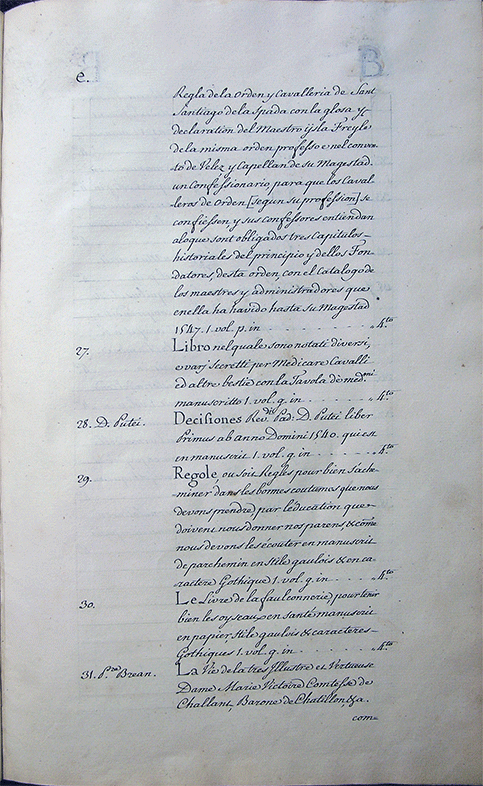 e.
B
Regla de la Orden y Cavalleria de Sant
Santiago de la Spada con la glosa y
declaration del Maestro ysla Freyle
de la misma orden professo e nel conven-
to de Velez y Capellan de su Magestad.
un Confessionario para que los Caval-
leros de Orden [segun su profession] se
confiessen, y sus confessores entiendan
aloque sont obligados tres Capitulos
historiales del principio y dellos Fon-
datores, desta orden, con el Catalogo de
los maestres y administradores que
en ella ha havido hasta su Magestad
1547. 1. vol. p. in - - - - - - - - - „4.to
27. Libro nel quale sono notati diversi,
e varj secretti per Medicare Cavalli
ed altre bestie con la Tavola de med.mi
manuscritto 1. vol. g. in - - - - - - „4.to
28. D. Putei. Decisiones Rev.di Pad: D. Putei liber
Primus ab anno Domini 1540. qui est
en manuscrit 1. vol. g. in - - - - - „4.to
29. Regole, ou soit Regles pour bien s'ache-
miner dans les bonnes coutumes que nous
devons prendre par l'éducation que
doivent nous donner nos parens, & cõme
nous devons les écouter en manuscrit
de parchemin en stile gaulois & en ca-
ractere Gothique 1. vol. g. in - - - - „4.to
30. Le Livre de la fauleonnerie pour tenir
bien les oyseaux en santé manuscrit
en papier, stile gaulois & caracteres
Gothiques 1. vol. g. in - - - - - - „4.to
31. P.re Brean. La Vie de la tres Illustre et Vertueuse
Dame Marie Victoire Comtesse de
Challant, Barone de Chatillon, &a.
com=